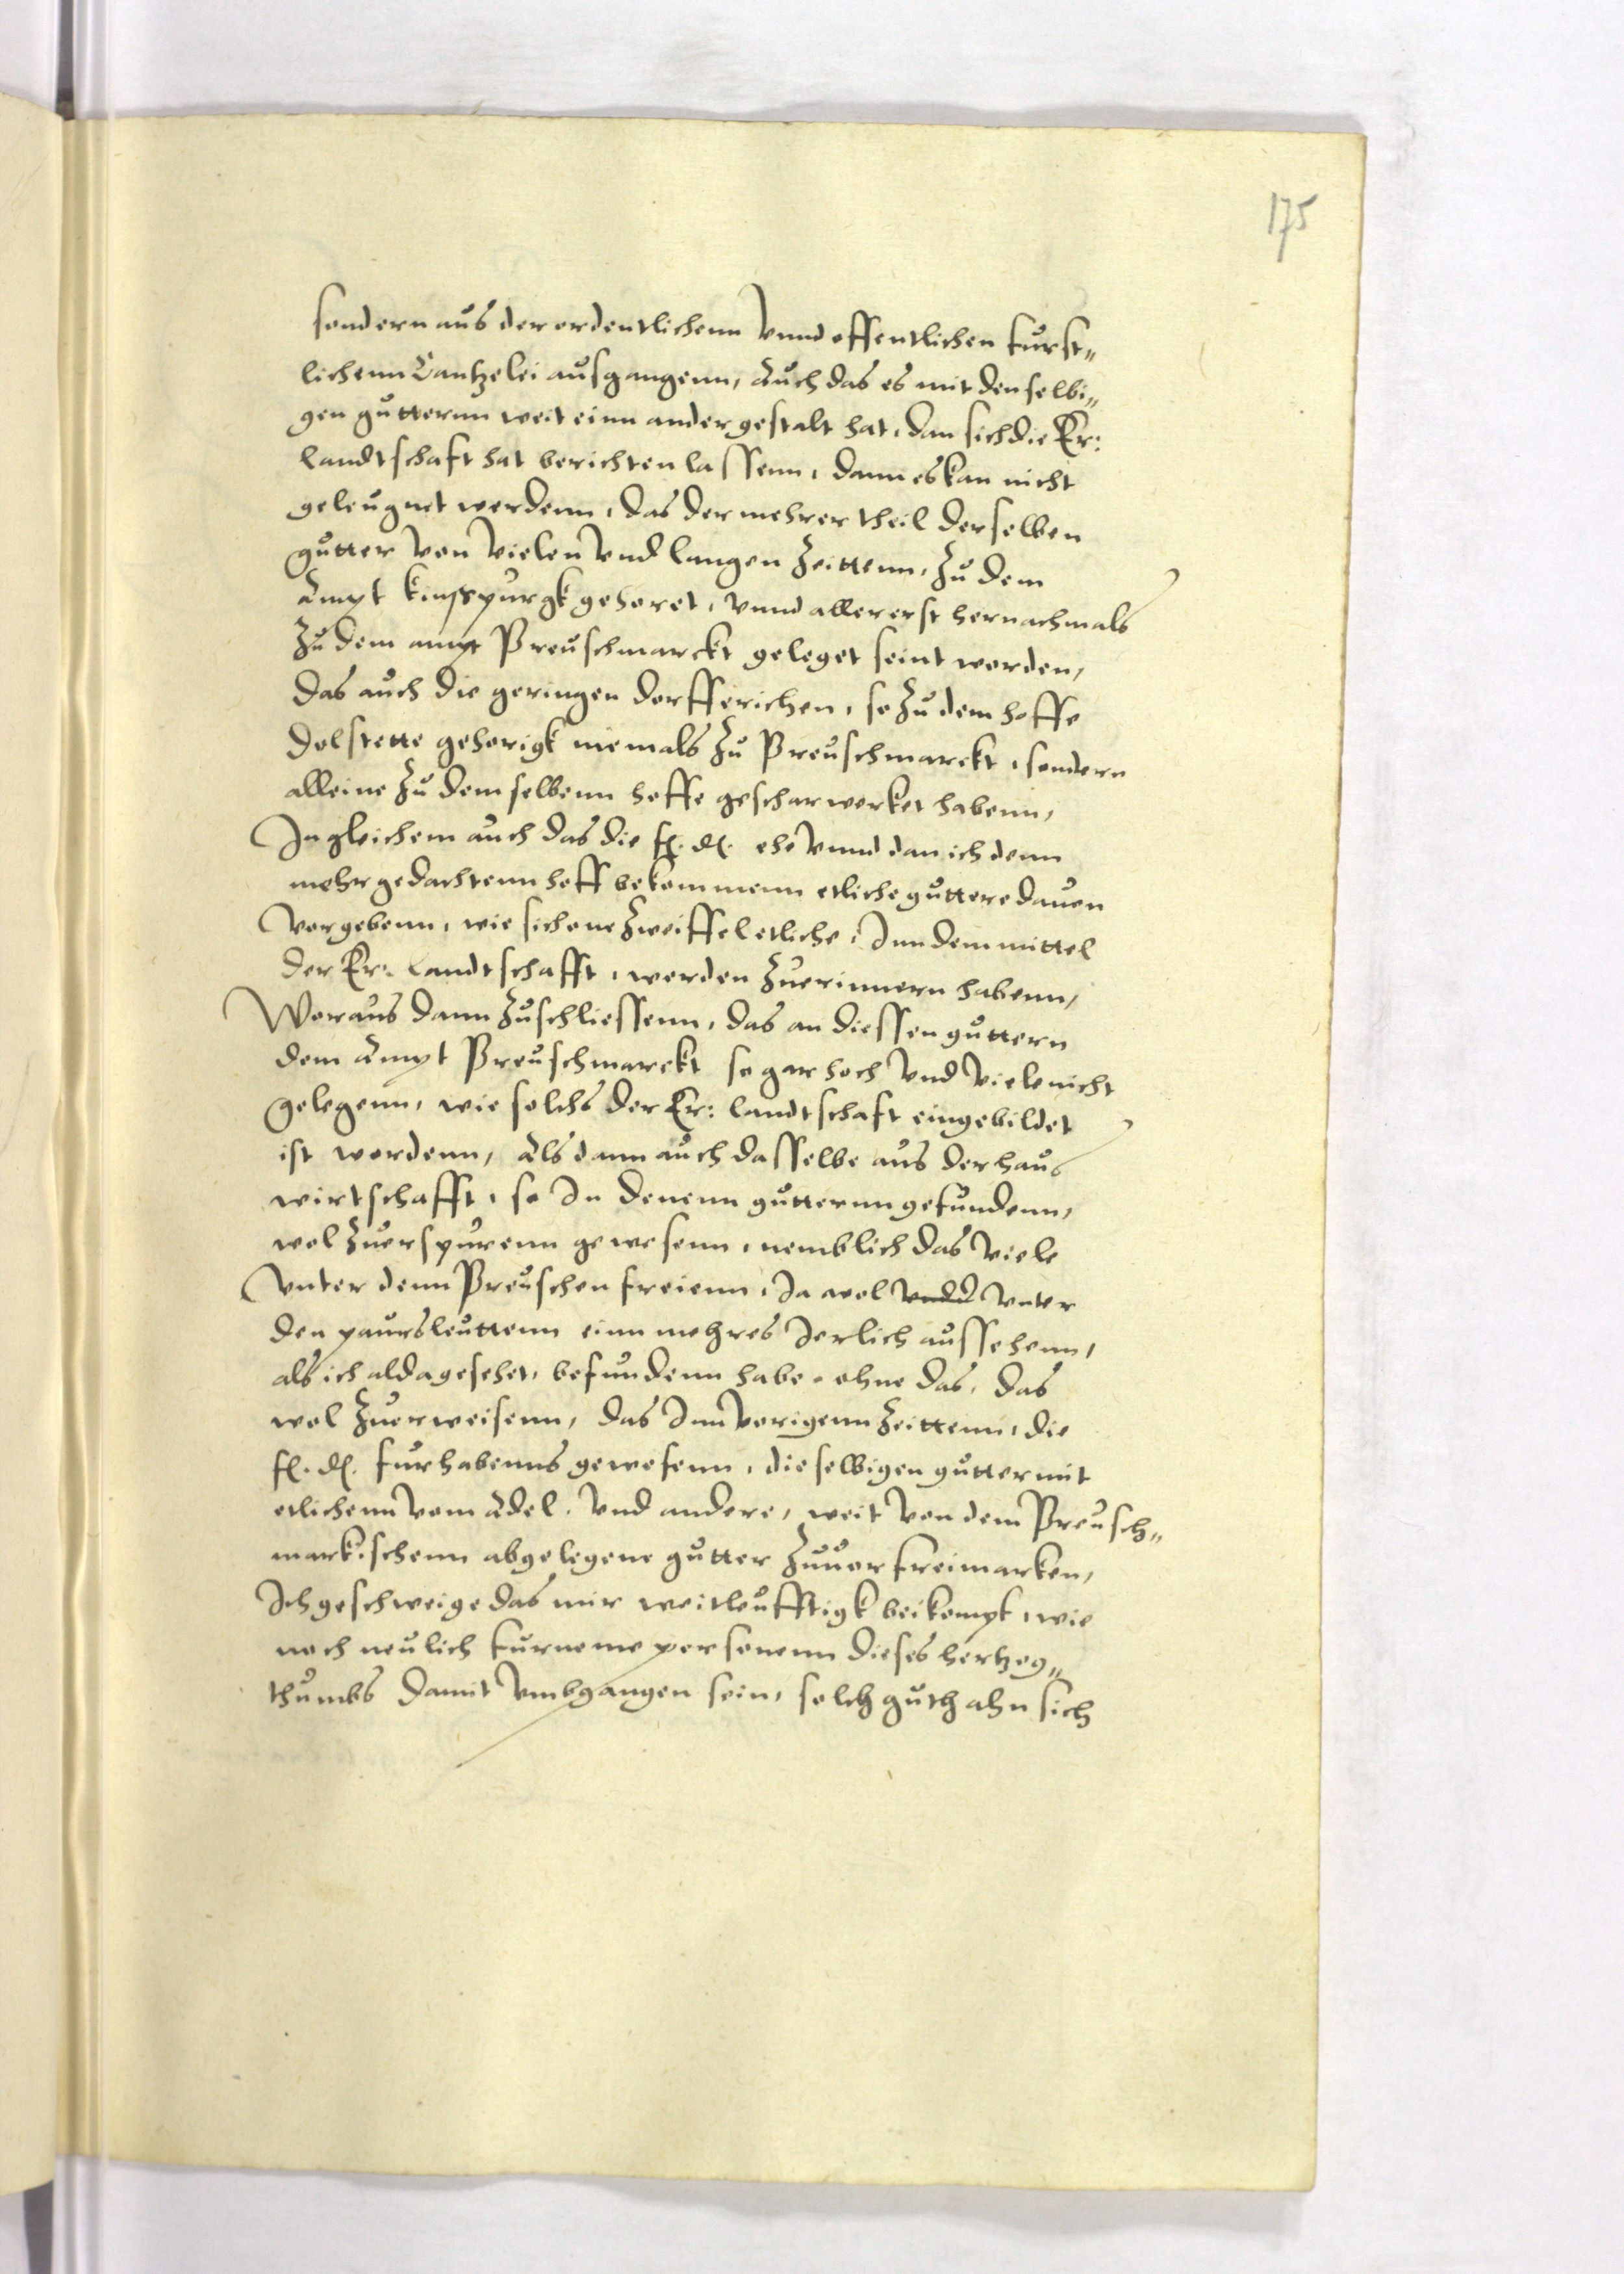 175
sondern aus der ordentlichenn vnnd offentlichen furst„
lichenn Cantzelei ausgangenn, Auch das es mit denselbi„
gen gutternn weit einn ander gestalt hat, dan sich die Er:
landtschaft hat berichten lassenn, dann es kan nicht
geleugnet werdenn, das der mehrer theil derselben
gutter von vielen vnd langen Zeittenn, Zu dem
Ampt kinspurgk gehoret, vnnd allererst hernachmals
Zu dem ampt Preuschmarckt geleget seint worden,
das auch die geringen dorfferichen, so Zu dem hoffe
dolstette gehorigk niemals Zu Preuschmarckt, sondern
alleine Zu demselbenn hoffe gescharwerket habenn,
Ingleichem auch das die f. d. ehe vnnd dan ich denn
mehrgedachtenn hoff bekommenn etliche guttere dauon
vorgebenn, wie sich one Zweiffel etliche, Inn dem mittel
der Er: landtschafft, werden Zuerinnern habenn,
Woraus dann Zuschliessenn, das an diessen guttern
dem Ampt Preuschmarckt so gar hoch vnd viele nicht
gelegenn, wie solchs der Er: landtschaft eingebildet
ist wordenn, Als dann auch dasselbe aus der haus
wirtschafft, so In denenn gutternn gefundenn,
wol Zuerspurenn gewesenn, nemblich das viele
vnter denn Preuschen freienn, Ja wol vndd vnter
den paursleuttenn einn mehres Jerlich aussehenn,
als ich alda gesehet, befundenn habe, ohne das, das
wol Zuerweisenn, das Inn vorigenn Zeittenn, die
f. d. furhabenns gewesenn, dieselbigen gutter mit
etlichenn vom Adel, vnd andere, weit von dem Preusch„
markischenn abgelegene gutter Zuuorfreimarken,
Ich geschweige das mir weitleufftigk beikompt, wie
noch neulich furneme personenn dieses hertzog„
thumbs damit vmbgangen sein, solch guth ahn sich